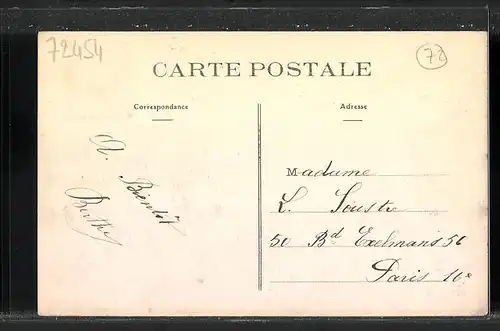 72454
72
CARTE POSTALE
Correspondance
Adresse
A Bientôt
Berthe
Madame
L. Soustre
50 Bd Exelmans 56
Paris 16e